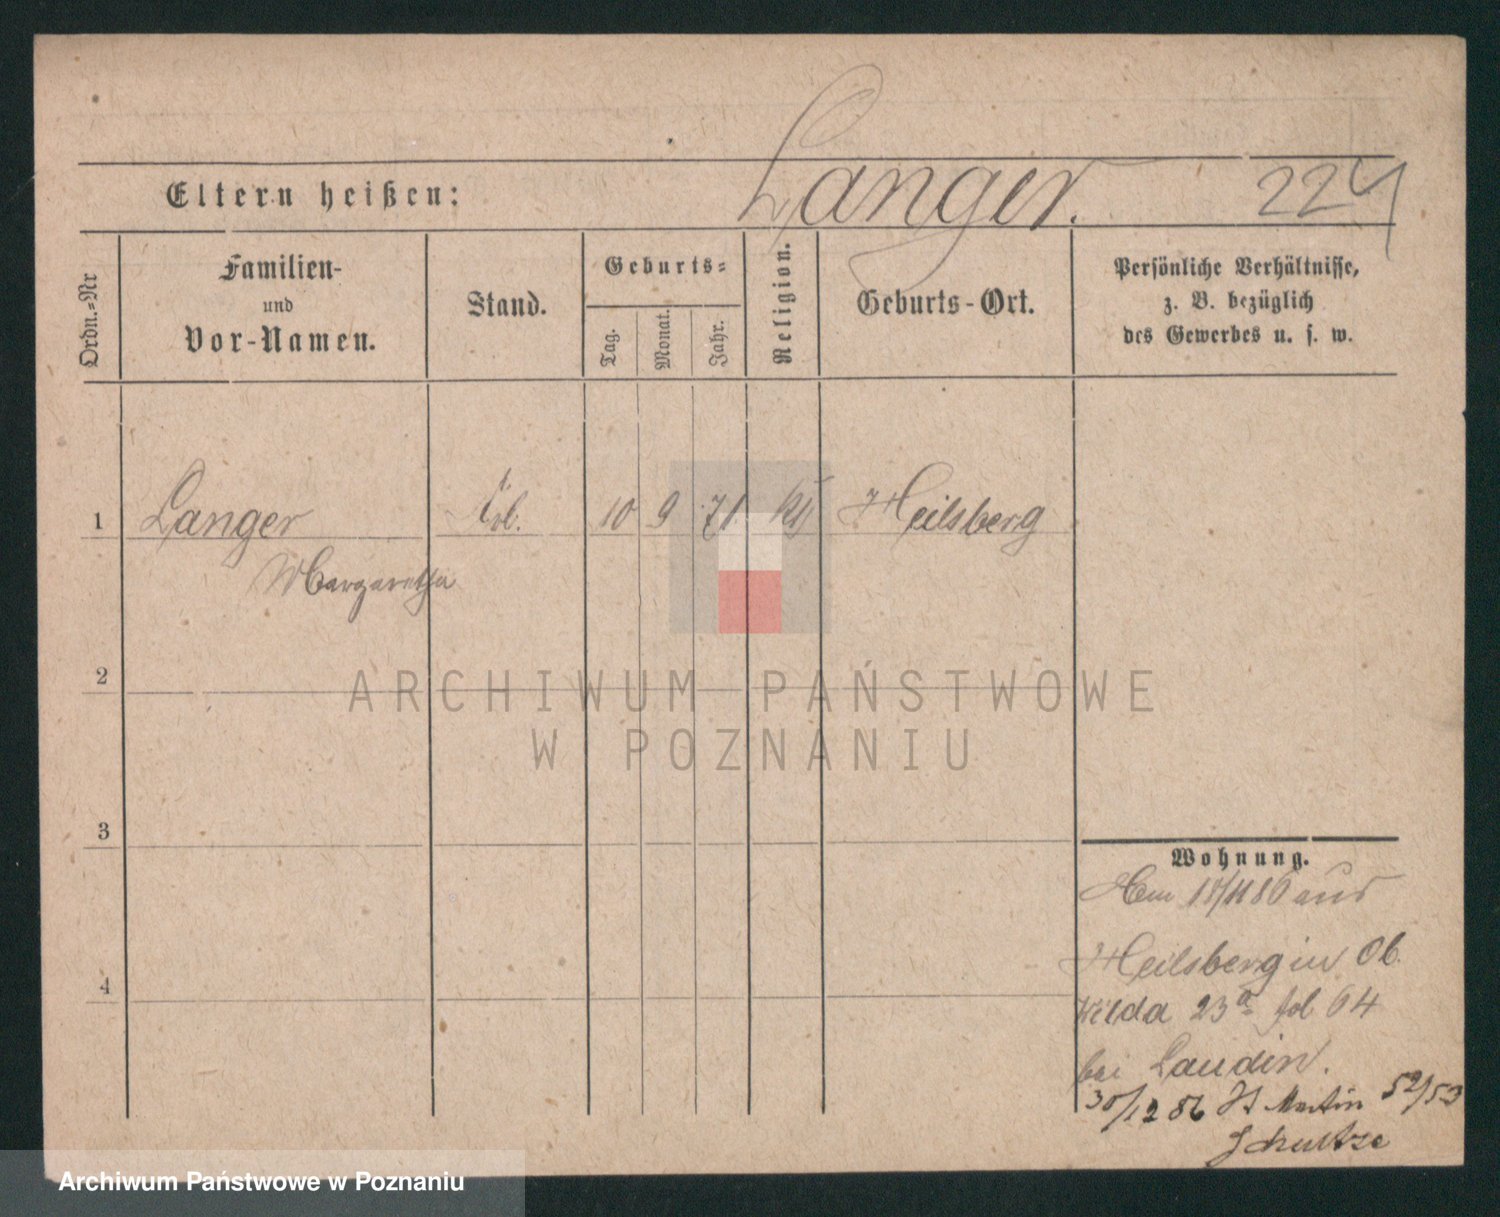 Langer. 224
Eltern heißen:
Ordn.-Nr
Familien-
und
Vor-Namen.
Stand.
Geburts-
Tag.
Monat.
Jahr.
Religion.
Geburts-Ort.
Persönliche Verhältnisse,
z. B. bezüglich
des Gewerbes u. s. w.
1 Langer 10 9 71 Heilsberg
Margaretha
2
3
4
Wohnung.
86 aus
Heilsberg in Ob.
Wilda 23a fol 64
bei Laudin.
30/12 86 St Martin 52/53
Schultze
ARCHIWUM PAŃSTWOWE
W POZNANIU
Archiwum Państwowe w Poznaniu